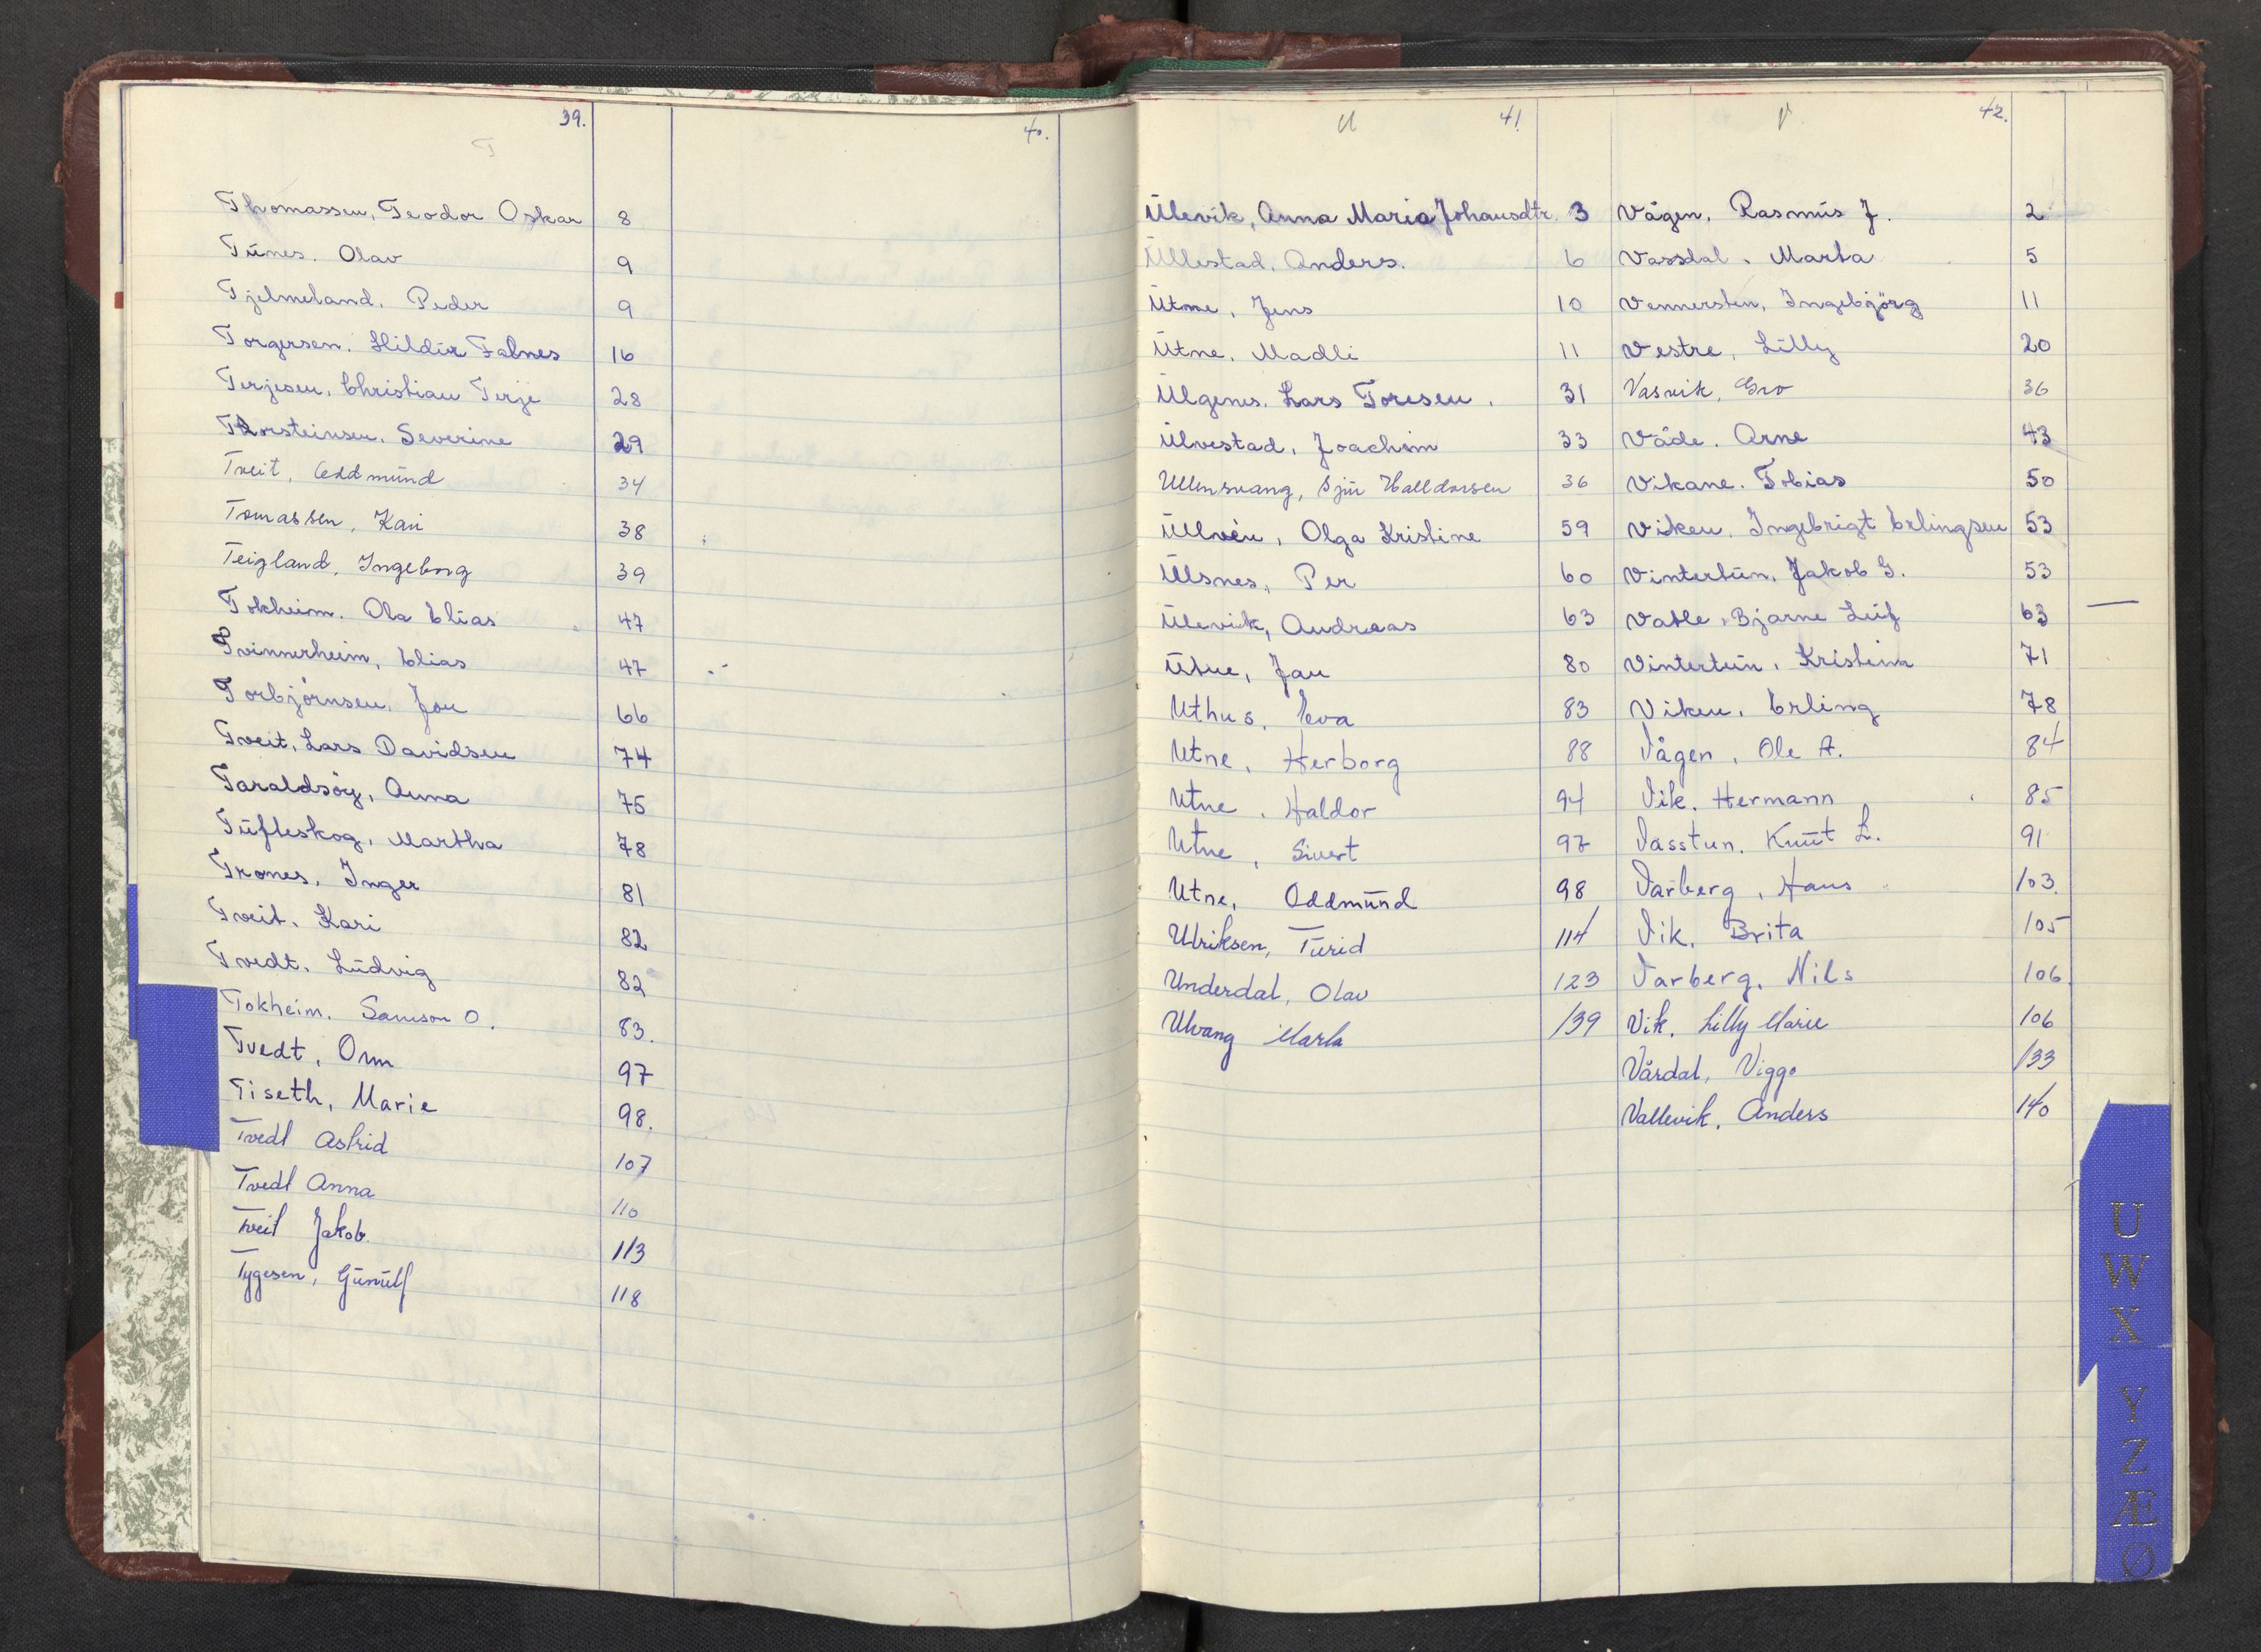 39.
T
Thomassen, Teodor Oskar 8
Tunes. Olav 9
Tjelmeland. Peder 9
Torgersen. Hildur Falnes 16
Terjesen, Christian Terje 28
Thorsteinsen. Severine 29
Tveit, Oddmund 34
Tomassen, Kari 38
Teigland, Ingeborg 39
Tokheim. Ola Elias 47
Tvinnerheim, Elias 47
Torbjörnsen, Jon 66
Tveit, Lars Davidsen 74
Taraldsöy, Anna 75
Tufteskog, Martha 78
Trones, Inger 81
Tveit. Kari 82
Tvedt. Ludvig 82
Tokheim. Samson O. 83.
Tvedt, Orm 97
Tiseth, Marie 98.
Tvedt Astrid 107
Tvedt Anna 110
Tveit Jakob. 113
Tygesen, Gunulf 118
40.
U
41.
Ulevik, Anna Maria Johansdtr. 3
Ullestad. Anders. 6
Utne, Jens 10
Utne, Madli 11
Ulgenes. Lars Toresen. 31
Ulvestad, Joachim 33
Ullensvang, Sjur Halldorsen 36
Ullvén, Olga Kristine 59
Ulsnes, Per 60
Ulevik, Andreas 63
Utne, Jan 80
Uthus, Eva 83
Utne, Herborg 88
Utne, Haldor 94
Utne, Sivert 97
Utne, Oddmund 98
Ulriksen, Turid 114
Underdal, Olav 123
Ulvang Marta 139
V
42.
Vågen, Rasmus J. 2
Vassdal, Marta 5
Vennersten, Ingebjörg 11
Vestre, Lilly 20
Vasvik, Gro 36
Våde. Arne 43
Vikane. Tobias 50
Viken. Ingebrigt Erlingsen 53
Vintertun, Jakob G. 53
Vatle, Bjarne Leif 63
Vintertun, Kristina 71
Viken, Erling 78
Vågen, Ole A. 84
Vik. Hermann 85
Vasstun. Knut L. 91
Varberg, Hans 103.
Vik, Brita 105
Varberg, Nils 106
Vik, Lilly Marie 106
Vårdal, Viggo 133
Vallevik, Anders 140
U
W
X
Y
Z
Æ
Ø